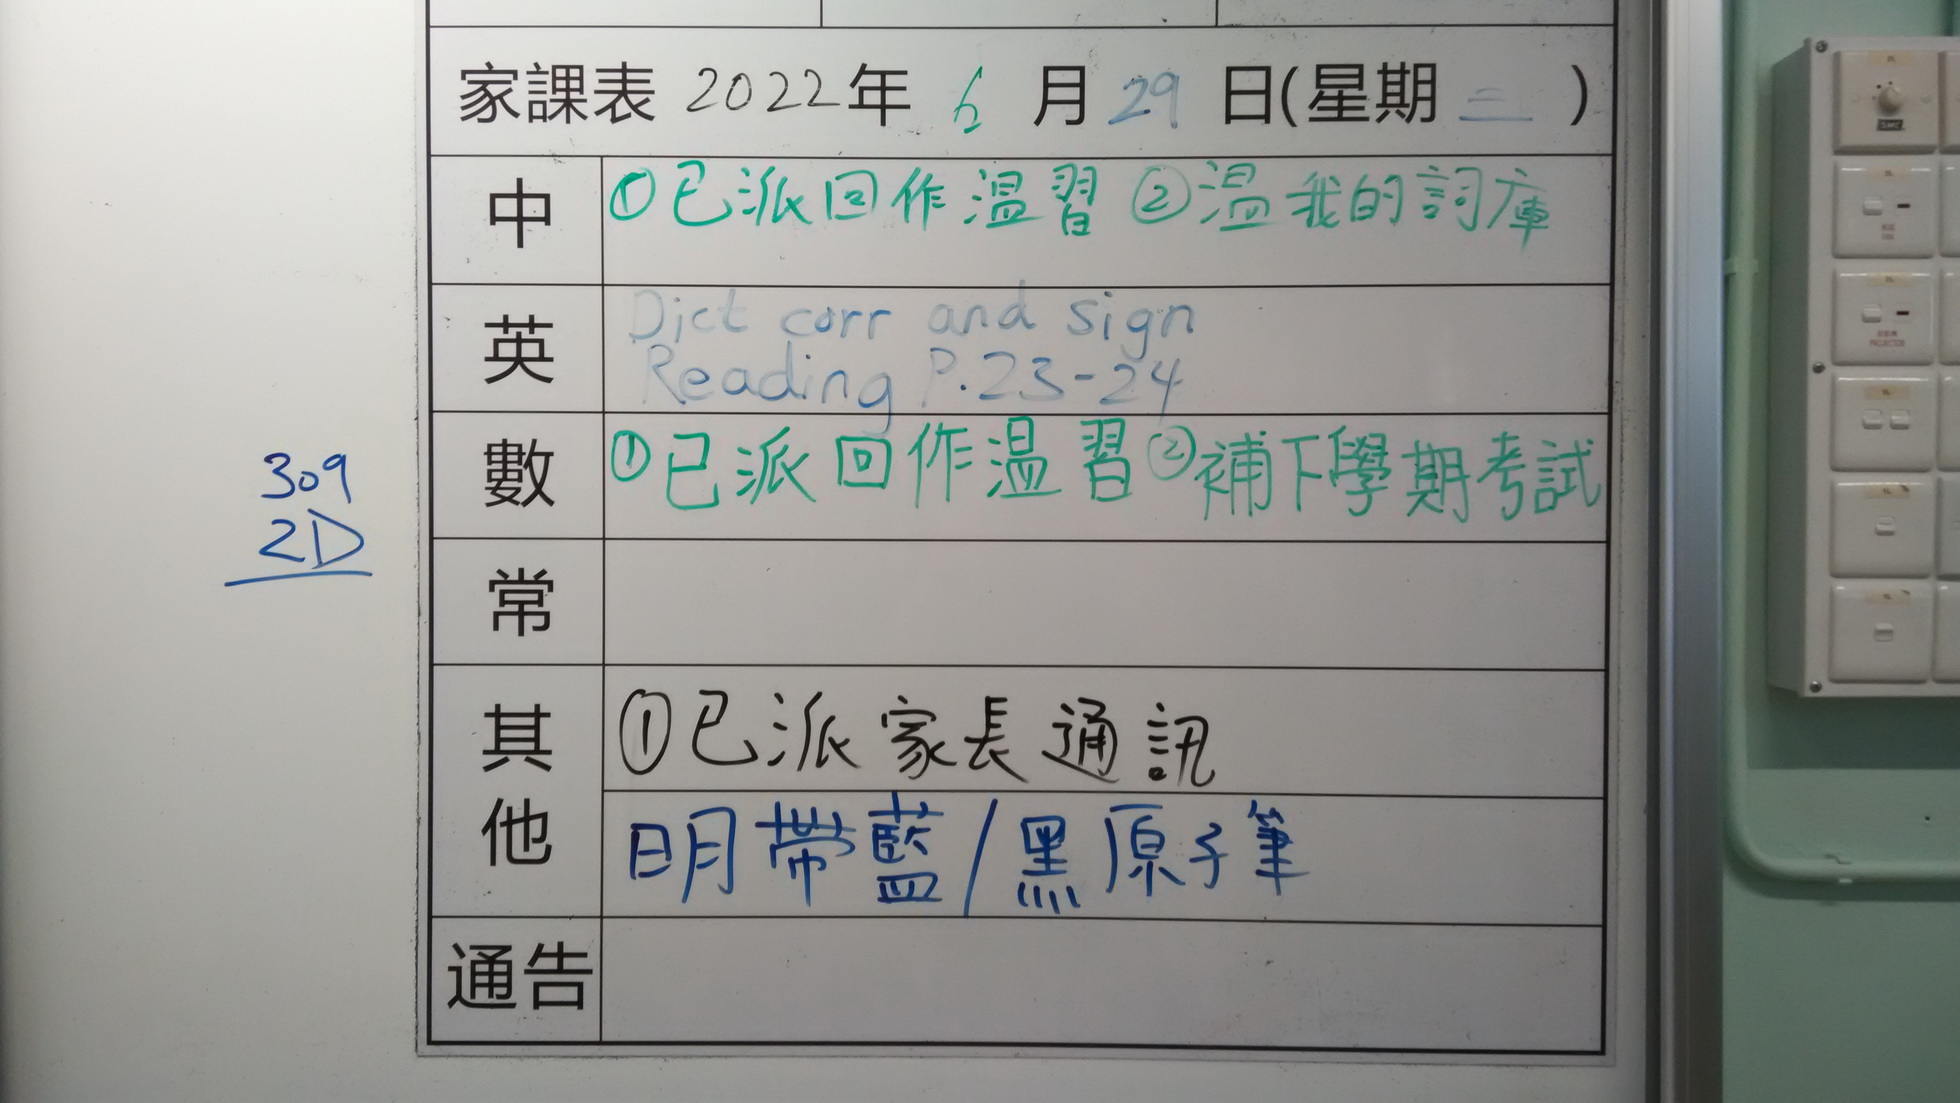 家課表 2022年 6月29日(星期三)
中 ①已派回作溫習 ②溫我的詞庫
英 Dict corr and sign
Reading P.23-24
數 ①已派回作溫習②補下學期考試
常
其他 ①已派家長通訊
明帶藍/黑原子筆
通告
309
2D